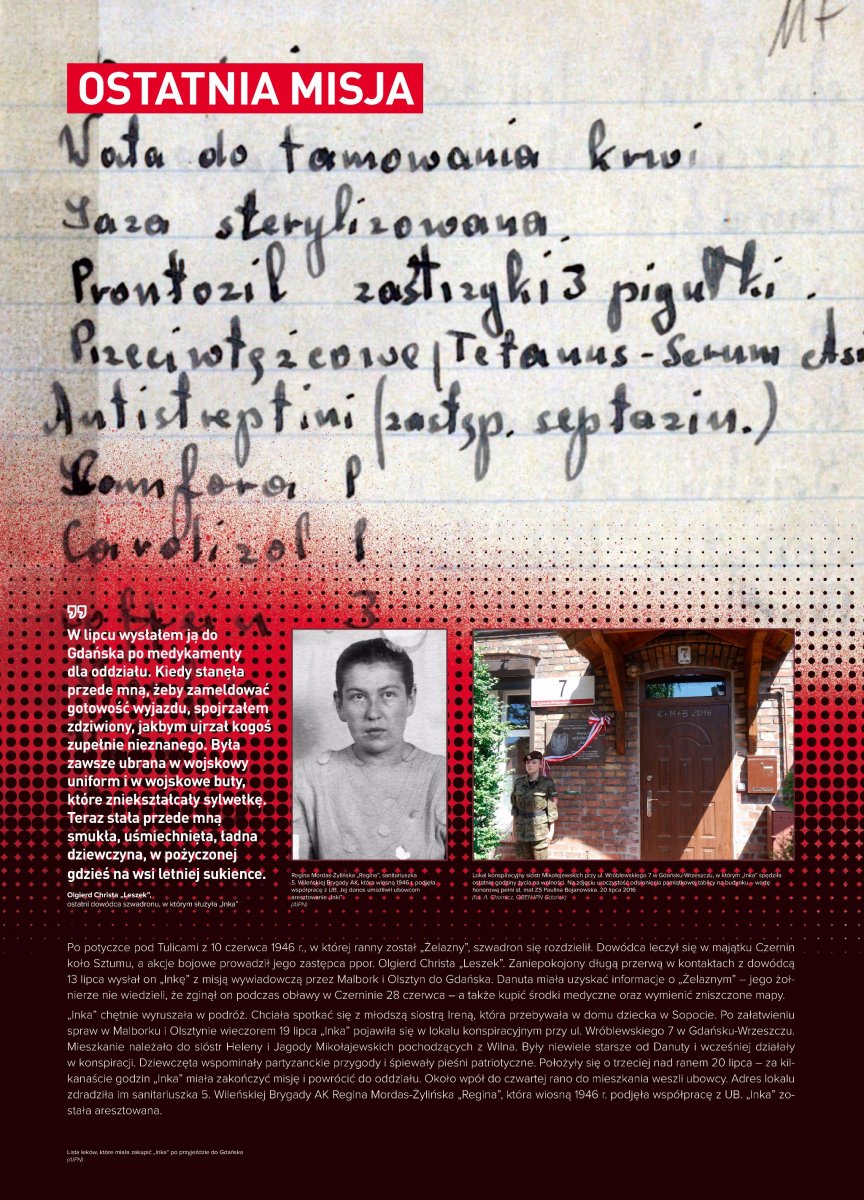 117
OSTATNIA MISJA
Wata do tamowania krwi
Gaza sterylizowana
Prontozil zastrzyki 3 pigułki.
Przeciwtężcowe / Tetanus - Serum
Antistreptini (zastęp. septazin.)
Kamfora 1
Cardizol 1
3
W lipcu wysłałem ją do
Gdańska po medykamenty
dla oddziału. Kiedy stanęła
przede mną, żeby zameldować
gotowość wyjazdu, spojrzałem
zdziwiony, jakbym ujrzał kogoś
zupełnie nieznanego. Była
zawsze ubrana w wojskowy
uniform i w wojskowe buty,
które zniekształcały sylwetkę.
Teraz stała przede mną
smukła, uśmiechnięta, ładna
dziewczyna, w pożyczonej
gdzieś na wsi letniej sukience.
Olgierd Christa „Leszek”,
ostatni dowódca szwadronu, w którym służyła „Inka”
Regina Mordas-Żylińska „Regina”, sanitariuszka
5. Wileńskiej Brygady AK, która wiosną 1946 r. podjęła
współpracę z UB. Jej donos umożliwił ubowcom
aresztowanie „Inki”
(AIPN)
7
7
K+M+B 2016
Lokal konspiracyjny sióstr Mikołajewskich przy ul. Wróblewskiego 7 w Gdańsku-Wrzeszczu, w którym „Inka” spędziła
ostatnie godziny życia na wolności. Na zdjęciu uroczystość odsłonięcia pamiątkowej tablicy na budynku – wartę
honorową pełni st. mat ZS Paulina Bojanowska. 20 lipca 2016
(fot. A. Ghomicz, OBEN IPN Gdańsk)
Po potyczce pod Tulicami z 10 czerwca 1946 r., w której ranny został „Żelazny”, szwadron się rozdzielił. Dowódca leczył się w majątku Czernin
koło Sztumu, a akcje bojowe prowadził jego zastępca ppor. Olgierd Christa „Leszek”. Zaniepokojony długą przerwą w kontaktach z dowódcą
13 lipca wysłał on „Inkę” z misją wywiadowczą przez Malbork i Olsztyn do Gdańska. Danuta miała uzyskać informacje o „Żelaznym” – jego żoł-
nierze nie wiedzieli, że zginął on podczas obławy w Czerninie 28 czerwca – a także kupić środki medyczne oraz wymienić zniszczone mapy.
„Inka” chętnie wyruszała w podróż. Chciała spotkać się z młodszą siostrą Ireną, która przebywała w domu dziecka w Sopocie. Po załatwieniu
spraw w Malborku i Olsztynie wieczorem 19 lipca „Inka” pojawiła się w lokalu konspiracyjnym przy ul. Wróblewskiego 7 w Gdańsku-Wrzeszczu.
Mieszkanie należało do sióstr Heleny i Jagody Mikołajewskich pochodzących z Wilna. Były niewiele starsze od Danuty i wcześniej działały
w konspiracji. Dziewczęta wspominały partyzanckie przygody i śpiewały pieśni patriotyczne. Położyły się o trzeciej nad ranem 20 lipca – za kil-
kanaście godzin „Inka” miała zakończyć misję i powrócić do oddziału. Około wpół do czwartej rano do mieszkania weszli ubowcy. Adres lokalu
zdradziła im sanitariuszka 5. Wileńskiej Brygady AK Regina Mordas-Żylińska „Regina”, która wiosną 1946 r. podjęła współpracę z UB. „Inka” zo-
stała aresztowana.
Lista leków, które miała zakupić „Inka” po przyjeździe do Gdańska
(AIPN)